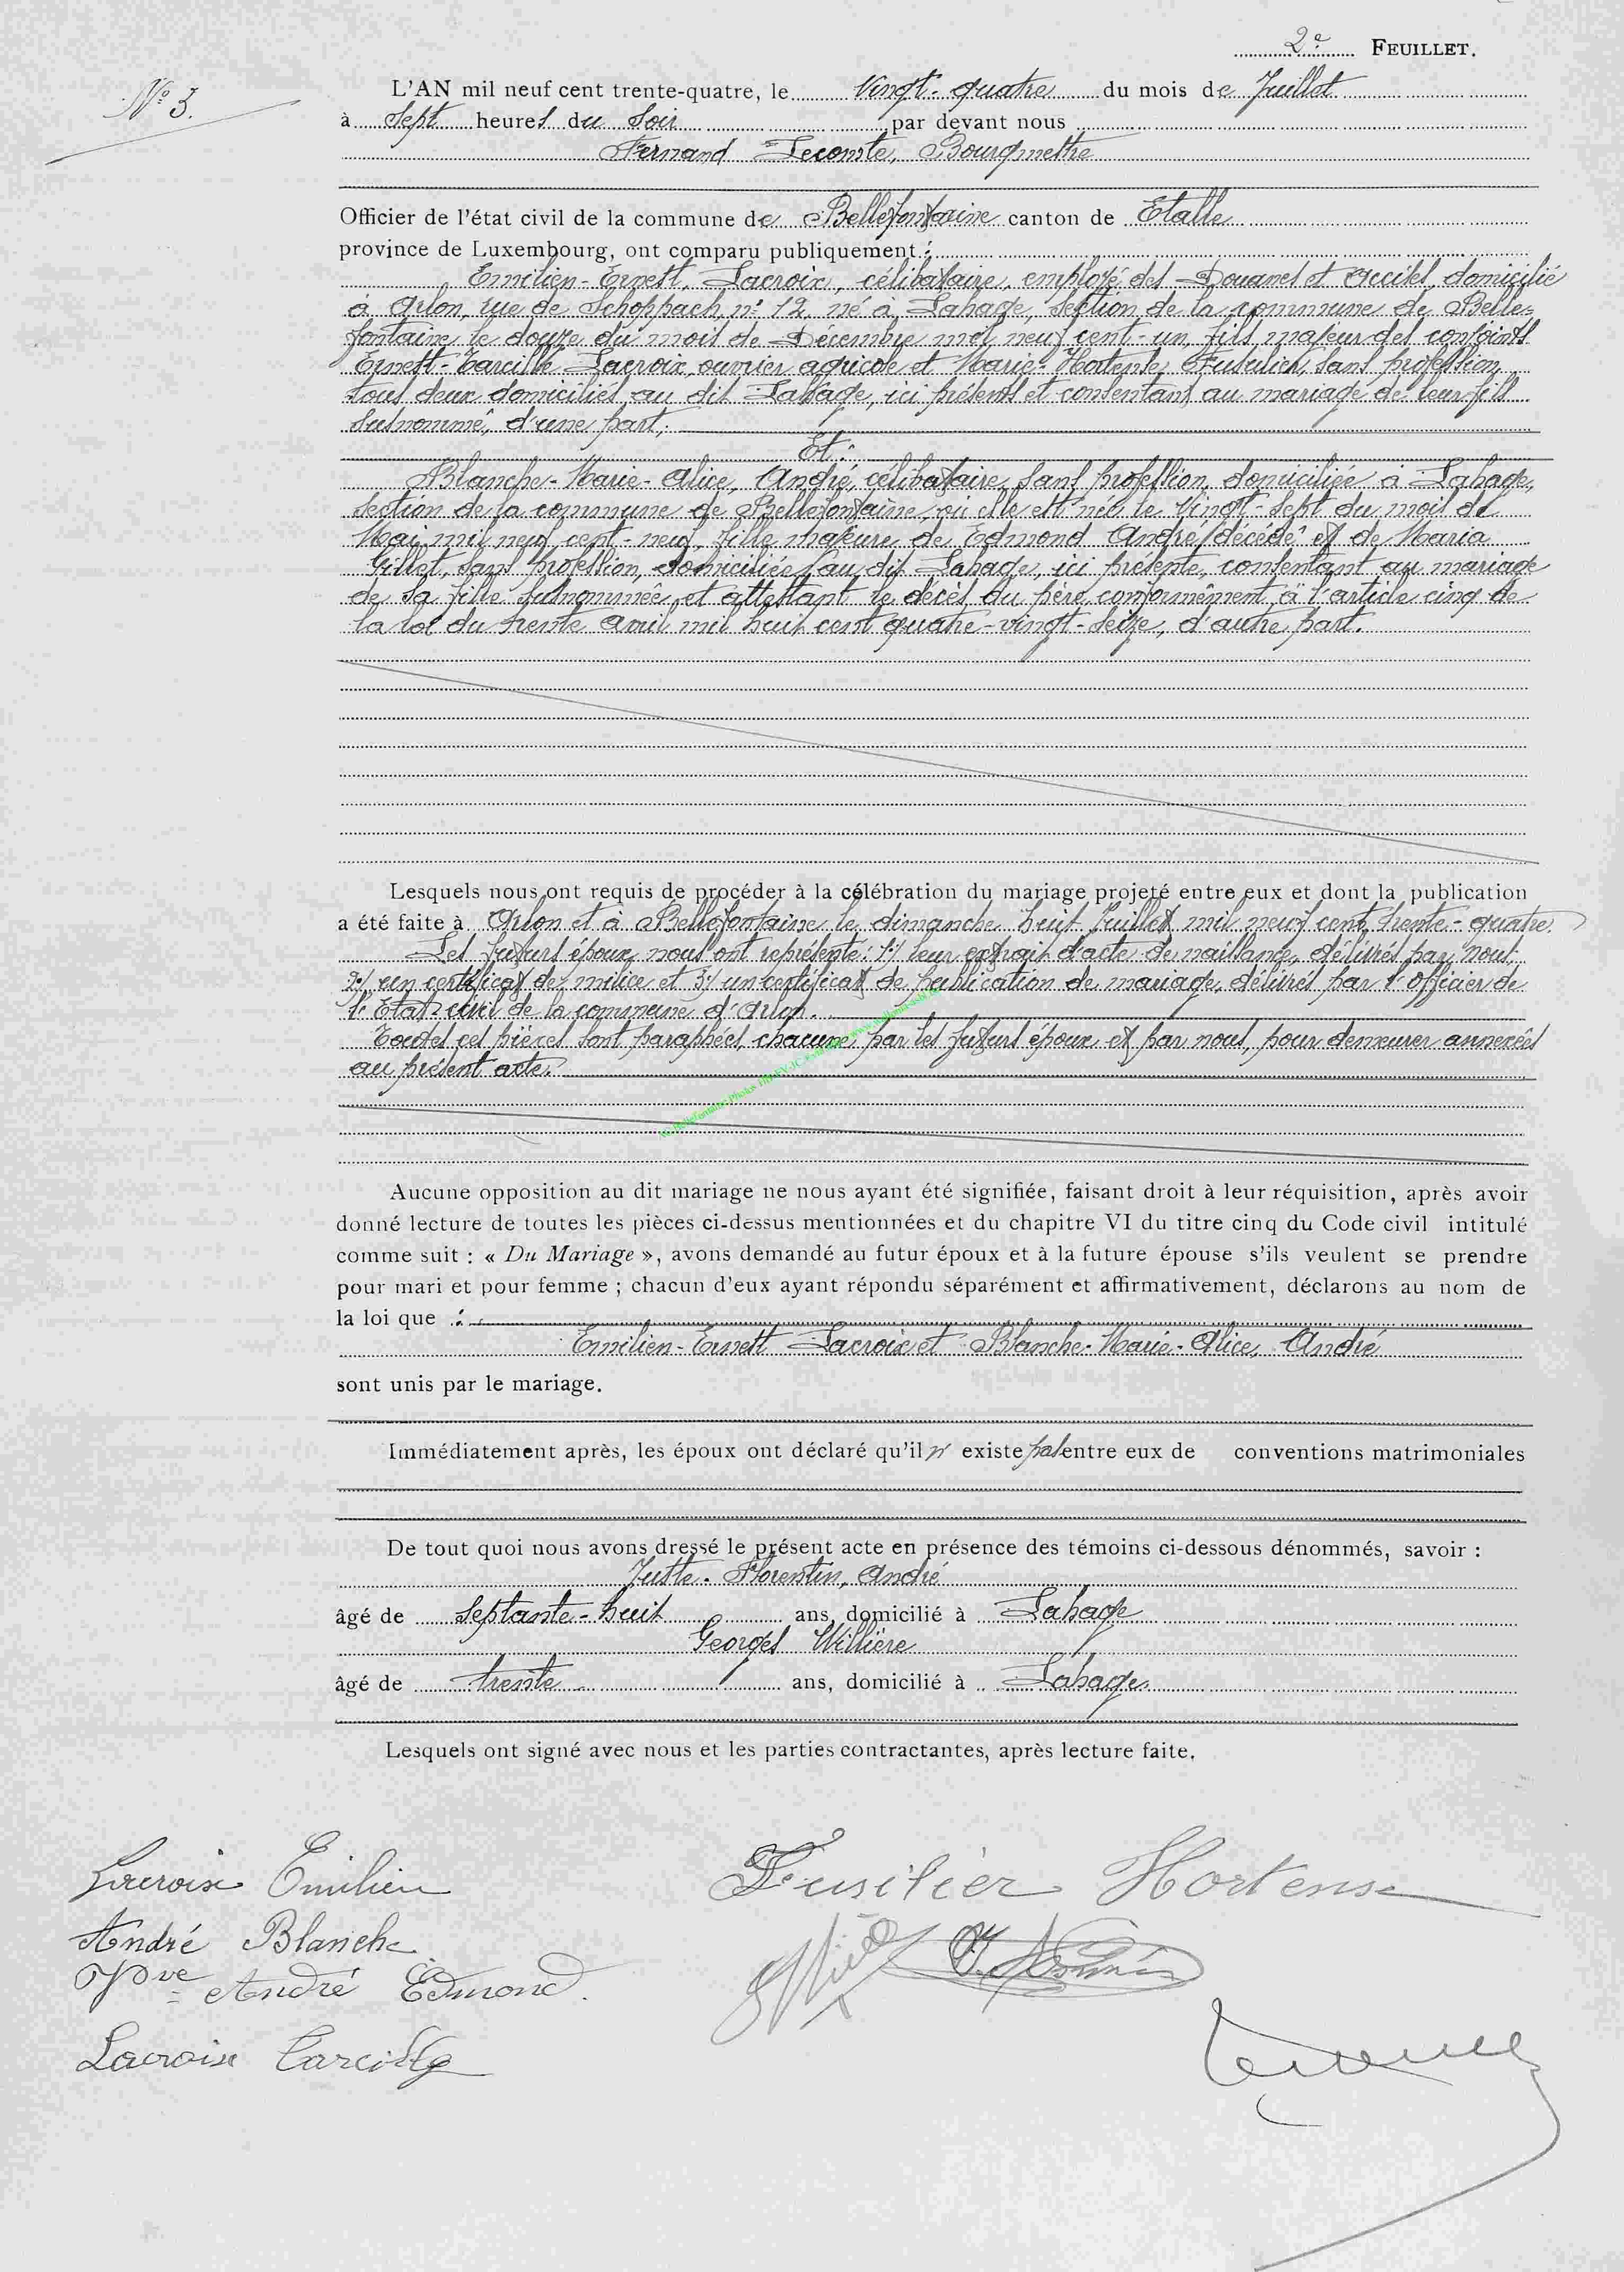 2e FEUILLET.
N° 3.
L'AN mil neuf cent trente-quatre, le Vingt-quatre du mois de Juillet
à Sept heures du Soir par devant nous
Fernand Lecomte, Bourgmestre
Officier de l'état civil de la commune de Bellefontaine canton de Etalle
province de Luxembourg, ont comparu publiquement :
Emilien-Ernest, Lacroix, célibataire, employé des Douanes et Accises, domicilié
à Arlon, rue de Schoppach, n° 12, né à Lahage, section de la commune de Belle-
fontaine le douze du mois de Décembre mil neuf cent-un, fils majeur des conjoints
Ernest-Tarcille Lacroix, ouvrier agricole et Marie-Hortense, Fusilier, sans profession,
tous deux domiciliés au dit Lahage, ici présents et consentant au mariage de leur fils
susnommé, d'une part,
Et :
Blanche-Marie-Alice, André, célibataire, sans profession, domiciliée à Lahage,
section de la commune de Bellefontaine, où elle est née le Vingt-sept du mois de
Mai mil neuf cent-neuf, fille majeure de Edmond André, décédé et de Maria
Gillet, sans profession, domiciliée au dit Lahage, ici présente, consentant au mariage
de sa fille susnommée et attestant le décès du père, conformément à l'article cinq de
la loi du trente avril mil huit cent quatre-vingt-seize, d'autre part.
Lesquels nous ont requis de procéder à la célébration du mariage projeté entre eux et dont la publication
a été faite à Arlon et à Bellefontaine le dimanche huit Juillet mil neuf cent trente-quatre.
Les futurs époux nous ont représenté : 1/ leur extrait d'acte de naissance, délivrés par nous
2/ un certificat de milice et 3/ un certificat de publication de mariage, délivré par l'officier de
l'Etat-civil de la commune d'Arlon.
Toutes ces pièces sont paraphées, chacune, par les futurs époux et par nous, pour demeurer annexées
au présent acte.
Aucune opposition au dit mariage ne nous ayant été signifiée, faisant droit à leur réquisition, après avoir
donné lecture de toutes les pièces ci-dessus mentionnées et du chapitre VI du titre cinq du Code civil intitulé
comme suit : « Du Mariage », avons demandé au futur époux et à la future épouse s'ils veulent se prendre
pour mari et pour femme ; chacun d'eux ayant répondu séparément et affirmativement, déclarons au nom de
la loi que :
Emilien-Ernest Lacroix et Blanche-Marie-Alice, André
sont unis par le mariage.
Immédiatement après, les époux ont déclaré qu'il n' existe pas entre eux de conventions matrimoniales
De tout quoi nous avons dressé le présent acte en présence des témoins ci-dessous dénommés, savoir :
Juste-Florentin, André
âgé de septante-huit ans, domicilié à Lahage
Georges Willière
âgé de trente ans, domicilié à Lahage
Lesquels ont signé avec nous et les parties contractantes, après lecture faite.
Lacroix Emilien
Fusilier Hortense
André Blanche
Vve André Edmond
Lacroix Tarcille